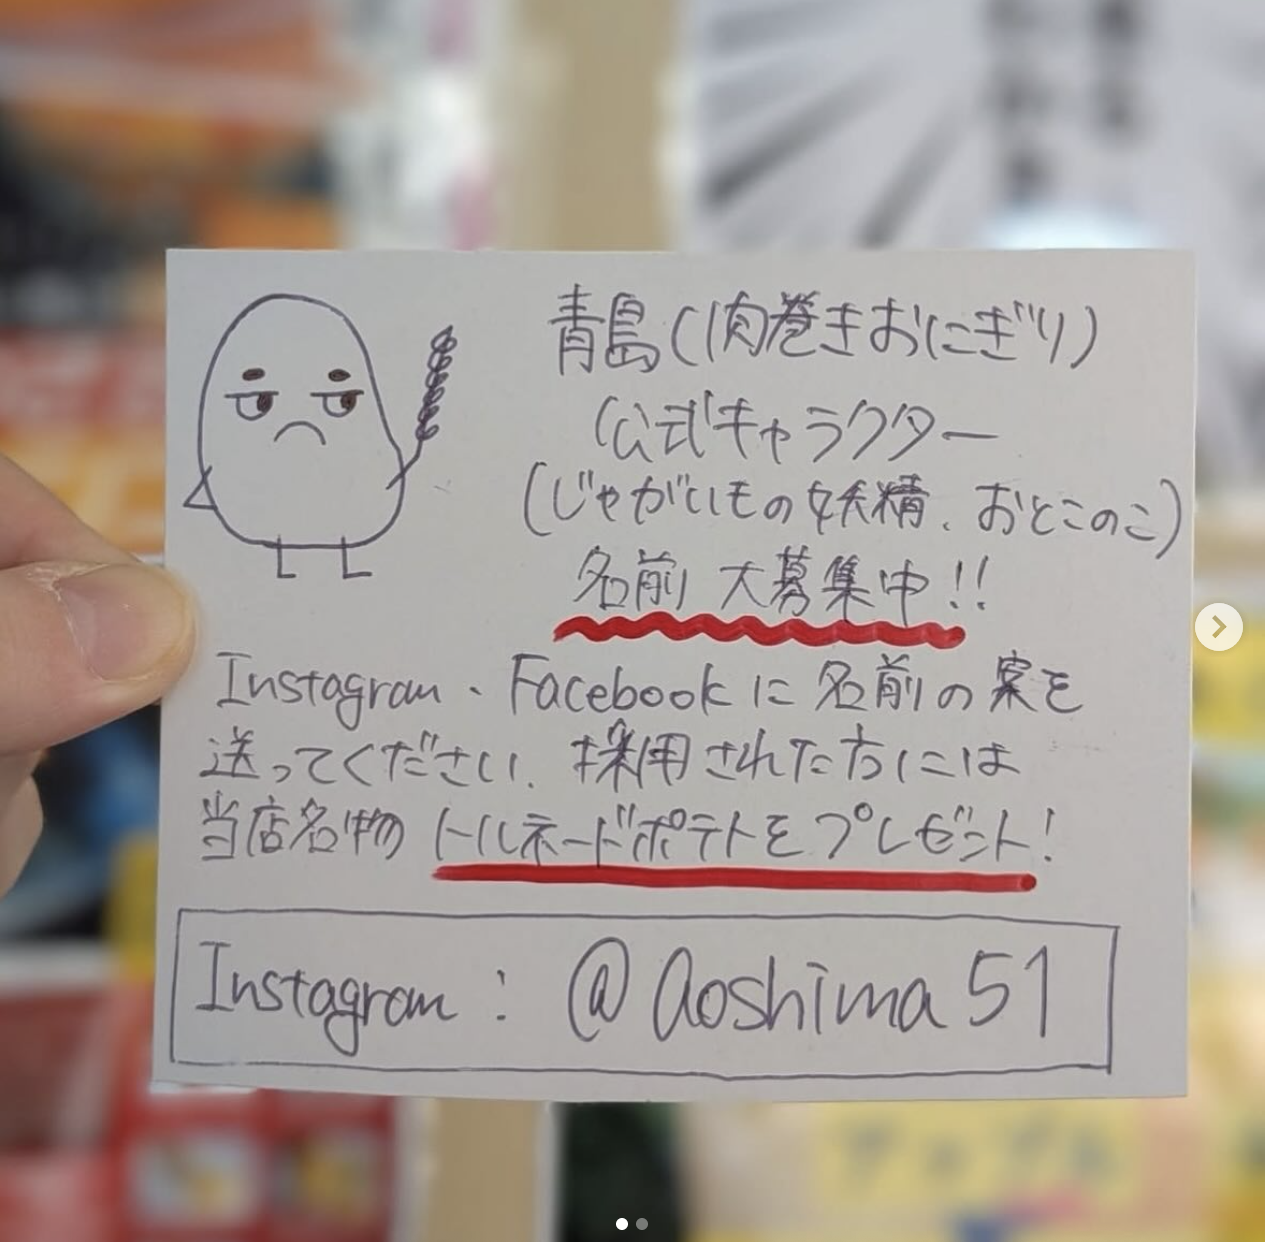 青島(肉巻きおにぎり)
公式キャラクター
(じゃがいもの妖精、おとこのこ)
名前 大募集中!!
Instagram・Facebookに名前の案を
送ってください。採用された方には
当店名物トルネードポテトをプレゼント!
Instagram : @aoshima51